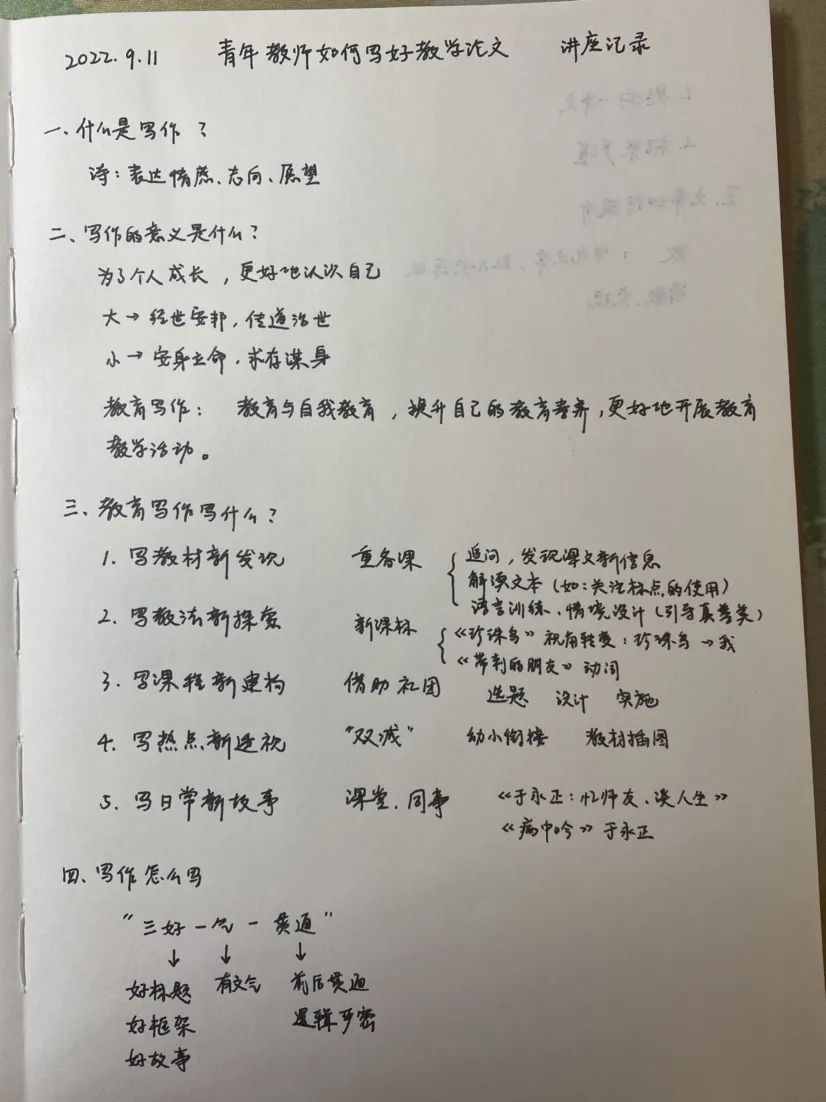 2022.9.11 青年教师如何写好教学论文 讲座记录
一.什么是写作？
诗：表达情感、志向、愿望
二、写作的意义是什么？
为了个人成长，更好地认识自己
大→经世安邦，传道治世
小→安身立命，求存谋身
教育写作：教育与自我教育，提升自己的教育素养，更好地开展教育
教学活动。
三、教育写作写什么？
1. 写教材新发现 重备课 { 追问，发现课文新信息
解读文本（如：关注标点的使用）
语言训练、情境设计（引导真善美）
2. 写教法新探索 新课标 { 《珍珠鸟》视角转变：珍珠鸟→我
《带刺的朋友》动词
3. 写课程新建构 借助社团 选题 设计 实施
4. 写热点新透视 “双减” 幼小衔接 教材插图
5. 写日常新故事 课堂、同事 《于永正：忆师友、谈人生》
《病中吟》于永正
四、写作怎么写
“三好一气一贯通”
↓ ↓ ↓
好标题 有文气 前后贯通
好框架 逻辑严密
好故事